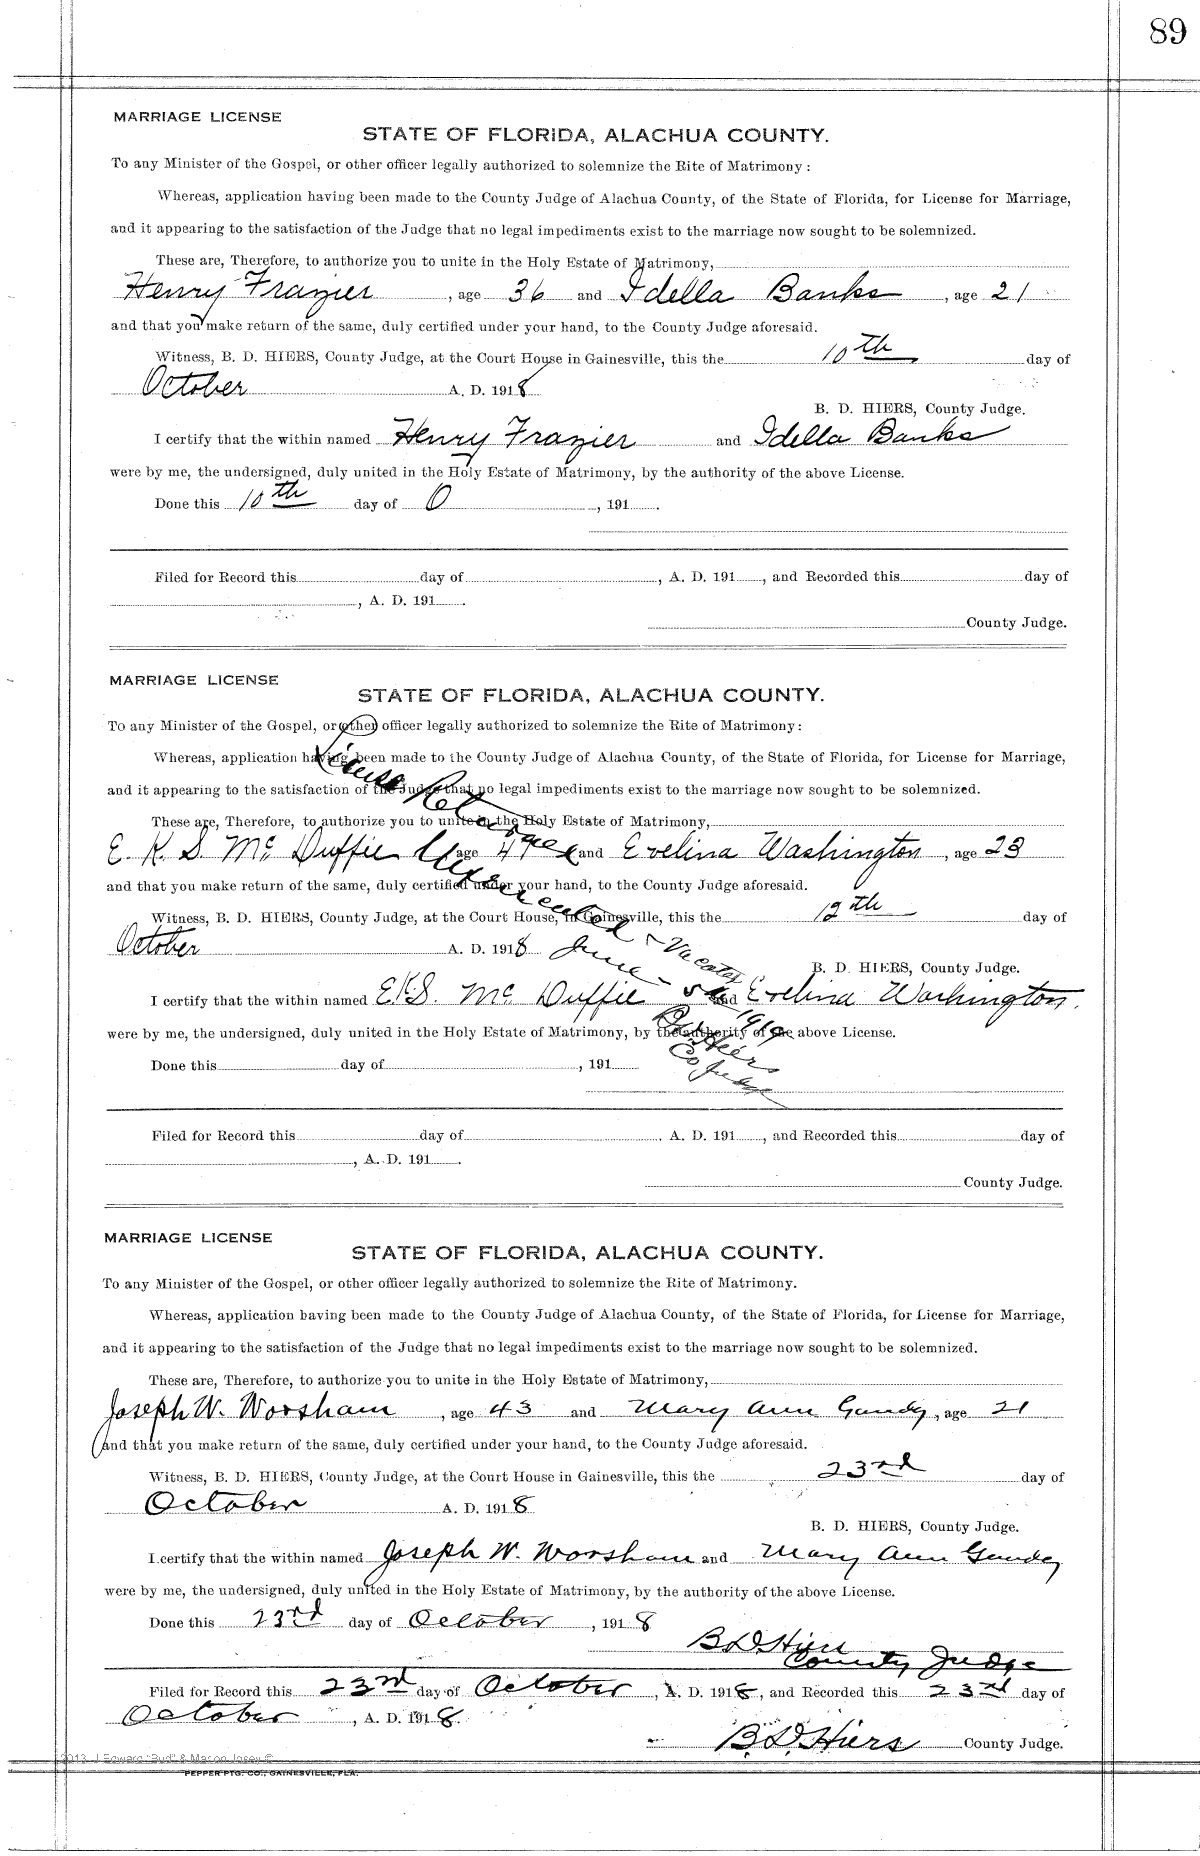 89
MARRIAGE LICENSE
STATE OF FLORIDA, ALACHUA COUNTY.
To any Minister of the Gospel, or other officer legally authorized to solemnize the Rite of Matrimony:
Whereas, application having been made to the County Judge of Alachua County, of the State of Florida, for License for Marriage,
and it appearing to the satisfaction of the Judge that no legal impediments exist to the marriage now sought to be solemnized.
These are, Therefore, to authorize you to unite in the Holy Estate of Matrimony,
Henry Frazier, age 36 and Idella Banks, age 21
and that you make return of the same, duly certified under your hand, to the County Judge aforesaid.
Witness, B. D. HIERS, County Judge, at the Court House in Gainesville, this the 10th day of
October A. D. 1918
B. D. HIERS, County Judge.
I certify that the within named Henry Frazier and Idella Banks
were by me, the undersigned, duly united in the Holy Estate of Matrimony, by the authority of the above License.
Done this 10th day of O, 191.
Filed for Record this day of , A. D. 191, and Recorded this day of
, A. D. 191.
County Judge.
MARRIAGE LICENSE
STATE OF FLORIDA, ALACHUA COUNTY.
To any Minister of the Gospel, or other officer legally authorized to solemnize the Rite of Matrimony:
Whereas, application having been made to the County Judge of Alachua County, of the State of Florida, for License for Marriage,
and it appearing to the satisfaction of the Judge that no legal impediments exist to the marriage now sought to be solemnized.
These are, Therefore, to authorize you to unite in the Holy Estate of Matrimony,
E. K. S. Mc Duffie age 47 and Evelina Washington, age 23
and that you make return of the same, duly certified under your hand, to the County Judge aforesaid.
Witness, B. D. HIERS, County Judge, at the Court House, in Gainesville, this the 12th day of
October A. D. 1918
B. D. HIERS, County Judge.
I certify that the within named E.K.S. Mc Duffie and Evelina Washington.
were by me, the undersigned, duly united in the Holy Estate of Matrimony, by the authority of the above License.
Done this day of , 191
License Returned
Unexecuted & Vacated
June 1919
B D Hiers
Co Judge
Filed for Record this day of , A. D. 191, and Recorded this day of
, A. D. 191.
County Judge.
MARRIAGE LICENSE
STATE OF FLORIDA, ALACHUA COUNTY.
To any Minister of the Gospel, or other officer legally authorized to solemnize the Rite of Matrimony.
Whereas, application having been made to the County Judge of Alachua County, of the State of Florida, for License for Marriage,
and it appearing to the satisfaction of the Judge that no legal impediments exist to the marriage now sought to be solemnized.
These are, Therefore, to authorize you to unite in the Holy Estate of Matrimony,
Joseph W. Worsham, age 43 and Mary Ann Gandy, age 21
and that you make return of the same, duly certified under your hand, to the County Judge aforesaid.
Witness, B. D. HIERS, County Judge, at the Court House in Gainesville, this the 23rd day of
October A. D. 1918
B. D. HIERS, County Judge.
I certify that the within named Joseph W. Worsham and Mary Ann Gandy
were by me, the undersigned, duly united in the Holy Estate of Matrimony, by the authority of the above License.
Done this 23rd day of October, 1918
B D Hiers
County Judge
Filed for Record this 23rd day of October, A. D. 1918, and Recorded this 23rd day of
October, A. D. 1918.
B D Hiers County Judge.
2013 J Edward "Bud" & Macon Josey ©
PEPPER PTG. CO., GAINESVILLE, FLA.